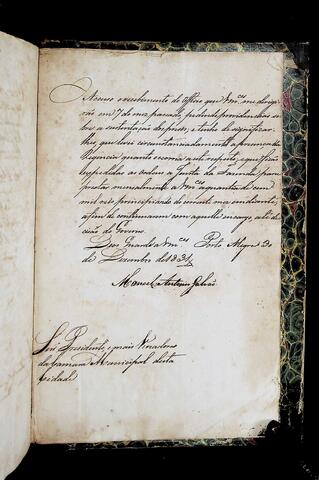 Accuso o recebimento do officio que Vm.ces me dirigi-
rão em 7 do mez passado, pedindo providencias so-
bre a sustentação dos prezos, e tenho de significar
lhes que levei circunstanciadamente a presença da
Regencia quanto occorria a este respeito, e que ficão
expedidas as ordens a Junta da Fazenda para
prestar mensalmente a Vm.ces a quantia de cem
mil reis principiando do corrente mez em diante,
afim de continuarem com aquelle encargo até de-
cisão do Governo.
Deos Guarde a Vm.ces Porto Alegre 20
de Dezembro de 1831
Manoel Antonio Galvão
Snr.es Presidente, e mais Vereadores
da Camara Municipal desta
Cidade